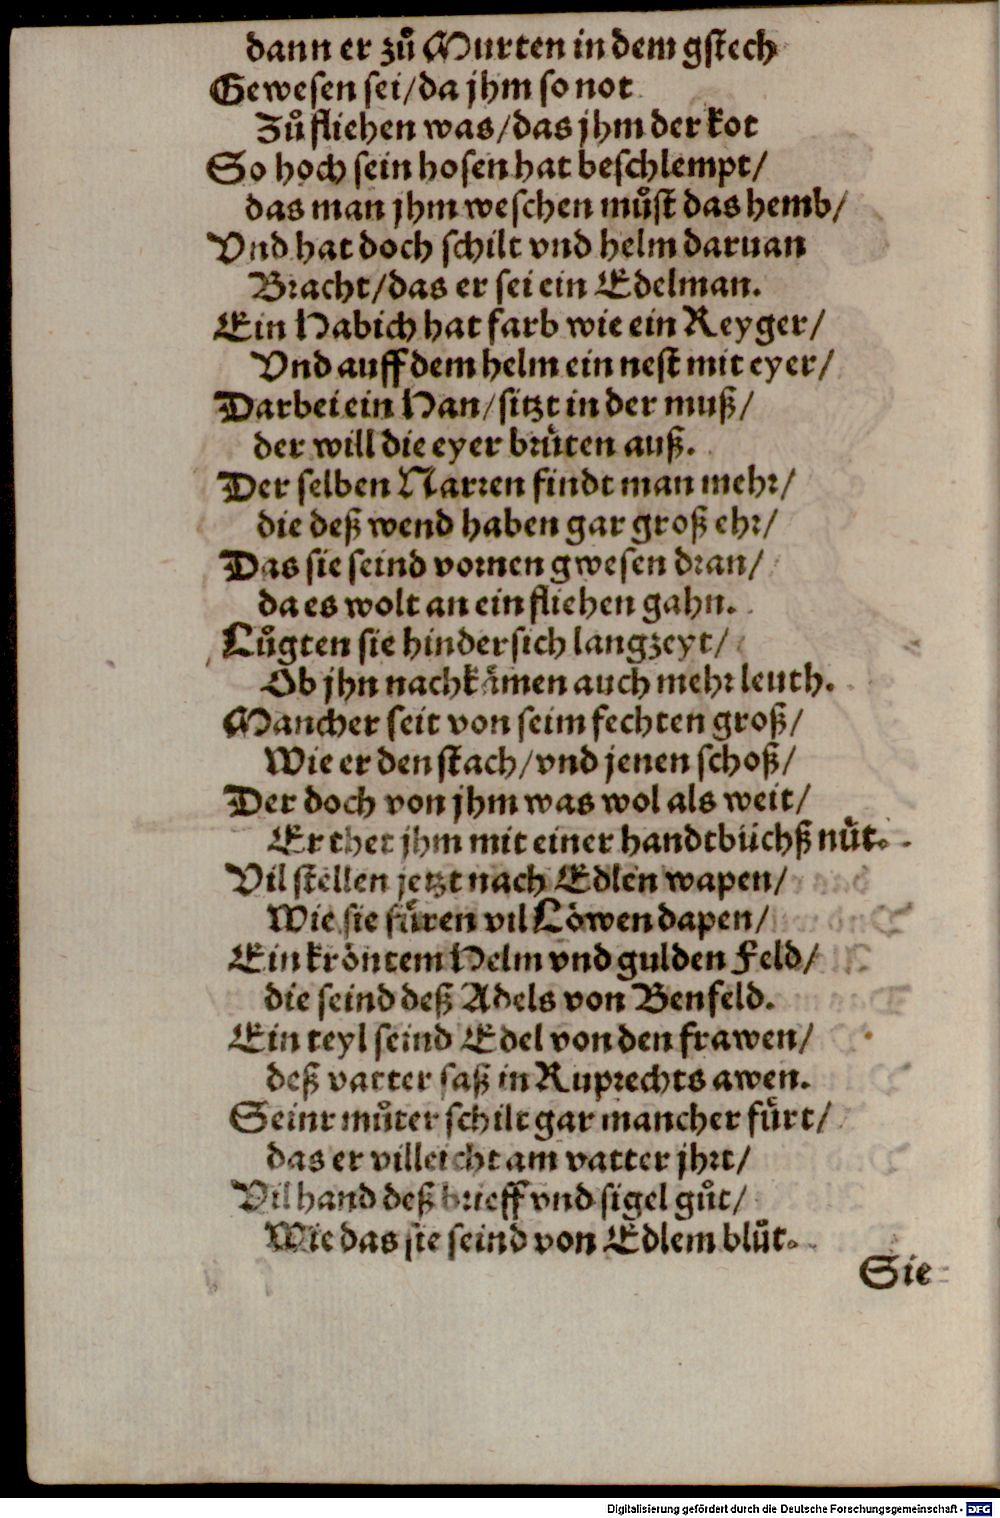 dann er zuͦ Murten in dem gstech
Gewesen sei/da jhm so not
Zuͦ fliehen was/das jhm der kot
So hoch sein hosen hat beschlempt/
das man jhm weschen muͦst das hemb/
Vnd hat doch schilt vnd helm daruan
Bracht/das er sei ein Edelman.
Ein Habich hat farb wie ein Reyger/
Vnd auff dem helm ein nest mit eyer/
Darbei ein Han/sitzt in der muß/
der will die eyer bruͤten auß.
Der selben Narren findt man mehr/
die deß wend haben gar groß ehr/
Das sie seind vornen gwesen dran/
da es wolt an ein fliehen gahn.
Luͦgten sie hindersich langzeyt/
Ob jhn nachkaͤmen auch mehr leuth.
Mancher seit von seim fechten groß/
Wie er den stach/vnd jenen schoß/
Der doch von jhm was wol als weit/
Er thet jhm mit einer handtbüchß nuͤt.
Vil stellen jetzt nach Edlen wapen/
Wie sie fuͤren vil Löwen dapen/
Ein kröntem Helm vnd gulden Feld/
die seind deß Adels von Benfeld.
Ein teyl seind Edel von den frawen/
deß vatter saß in Ruprechts awen.
Seinr muͦter schilt gar mancher fuͤrt/
das er villeicht am vatter jhrt/
Vil hand deß brieff vnd sigel guͦt/
Wie das sie seind von Edlem bluͦt.
Sie
Digitalisierung gefördert durch die Deutsche Forschungsgemeinschaft - DFG